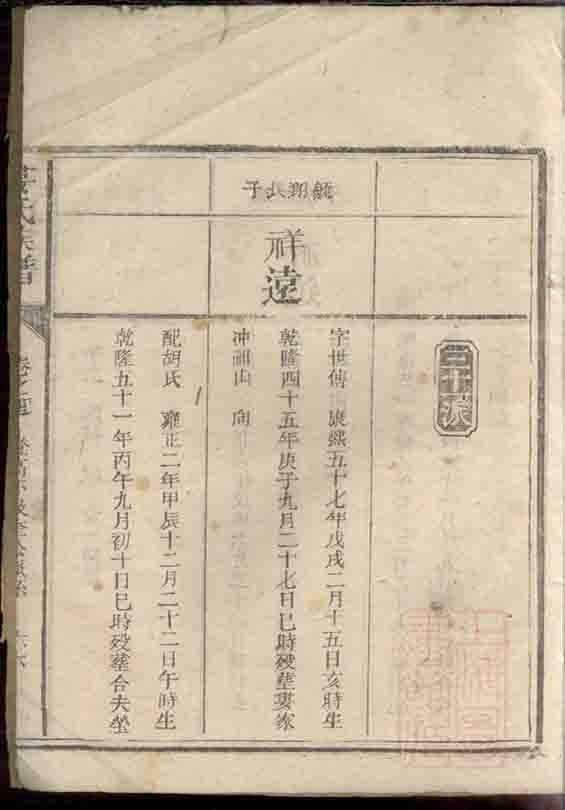 三十派
龍翔長子
祥遠
字世傳　康熙五十七年戊戌二月十五日亥時生
乾隆四十五年庚子九月二十七日巳時歿塟婁家
冲　山　向
配胡氏　雍正二年甲辰十二月二十二日午時生
乾隆五十一年丙午九月初十日巳時歿塟合夫塋
氏宗譜